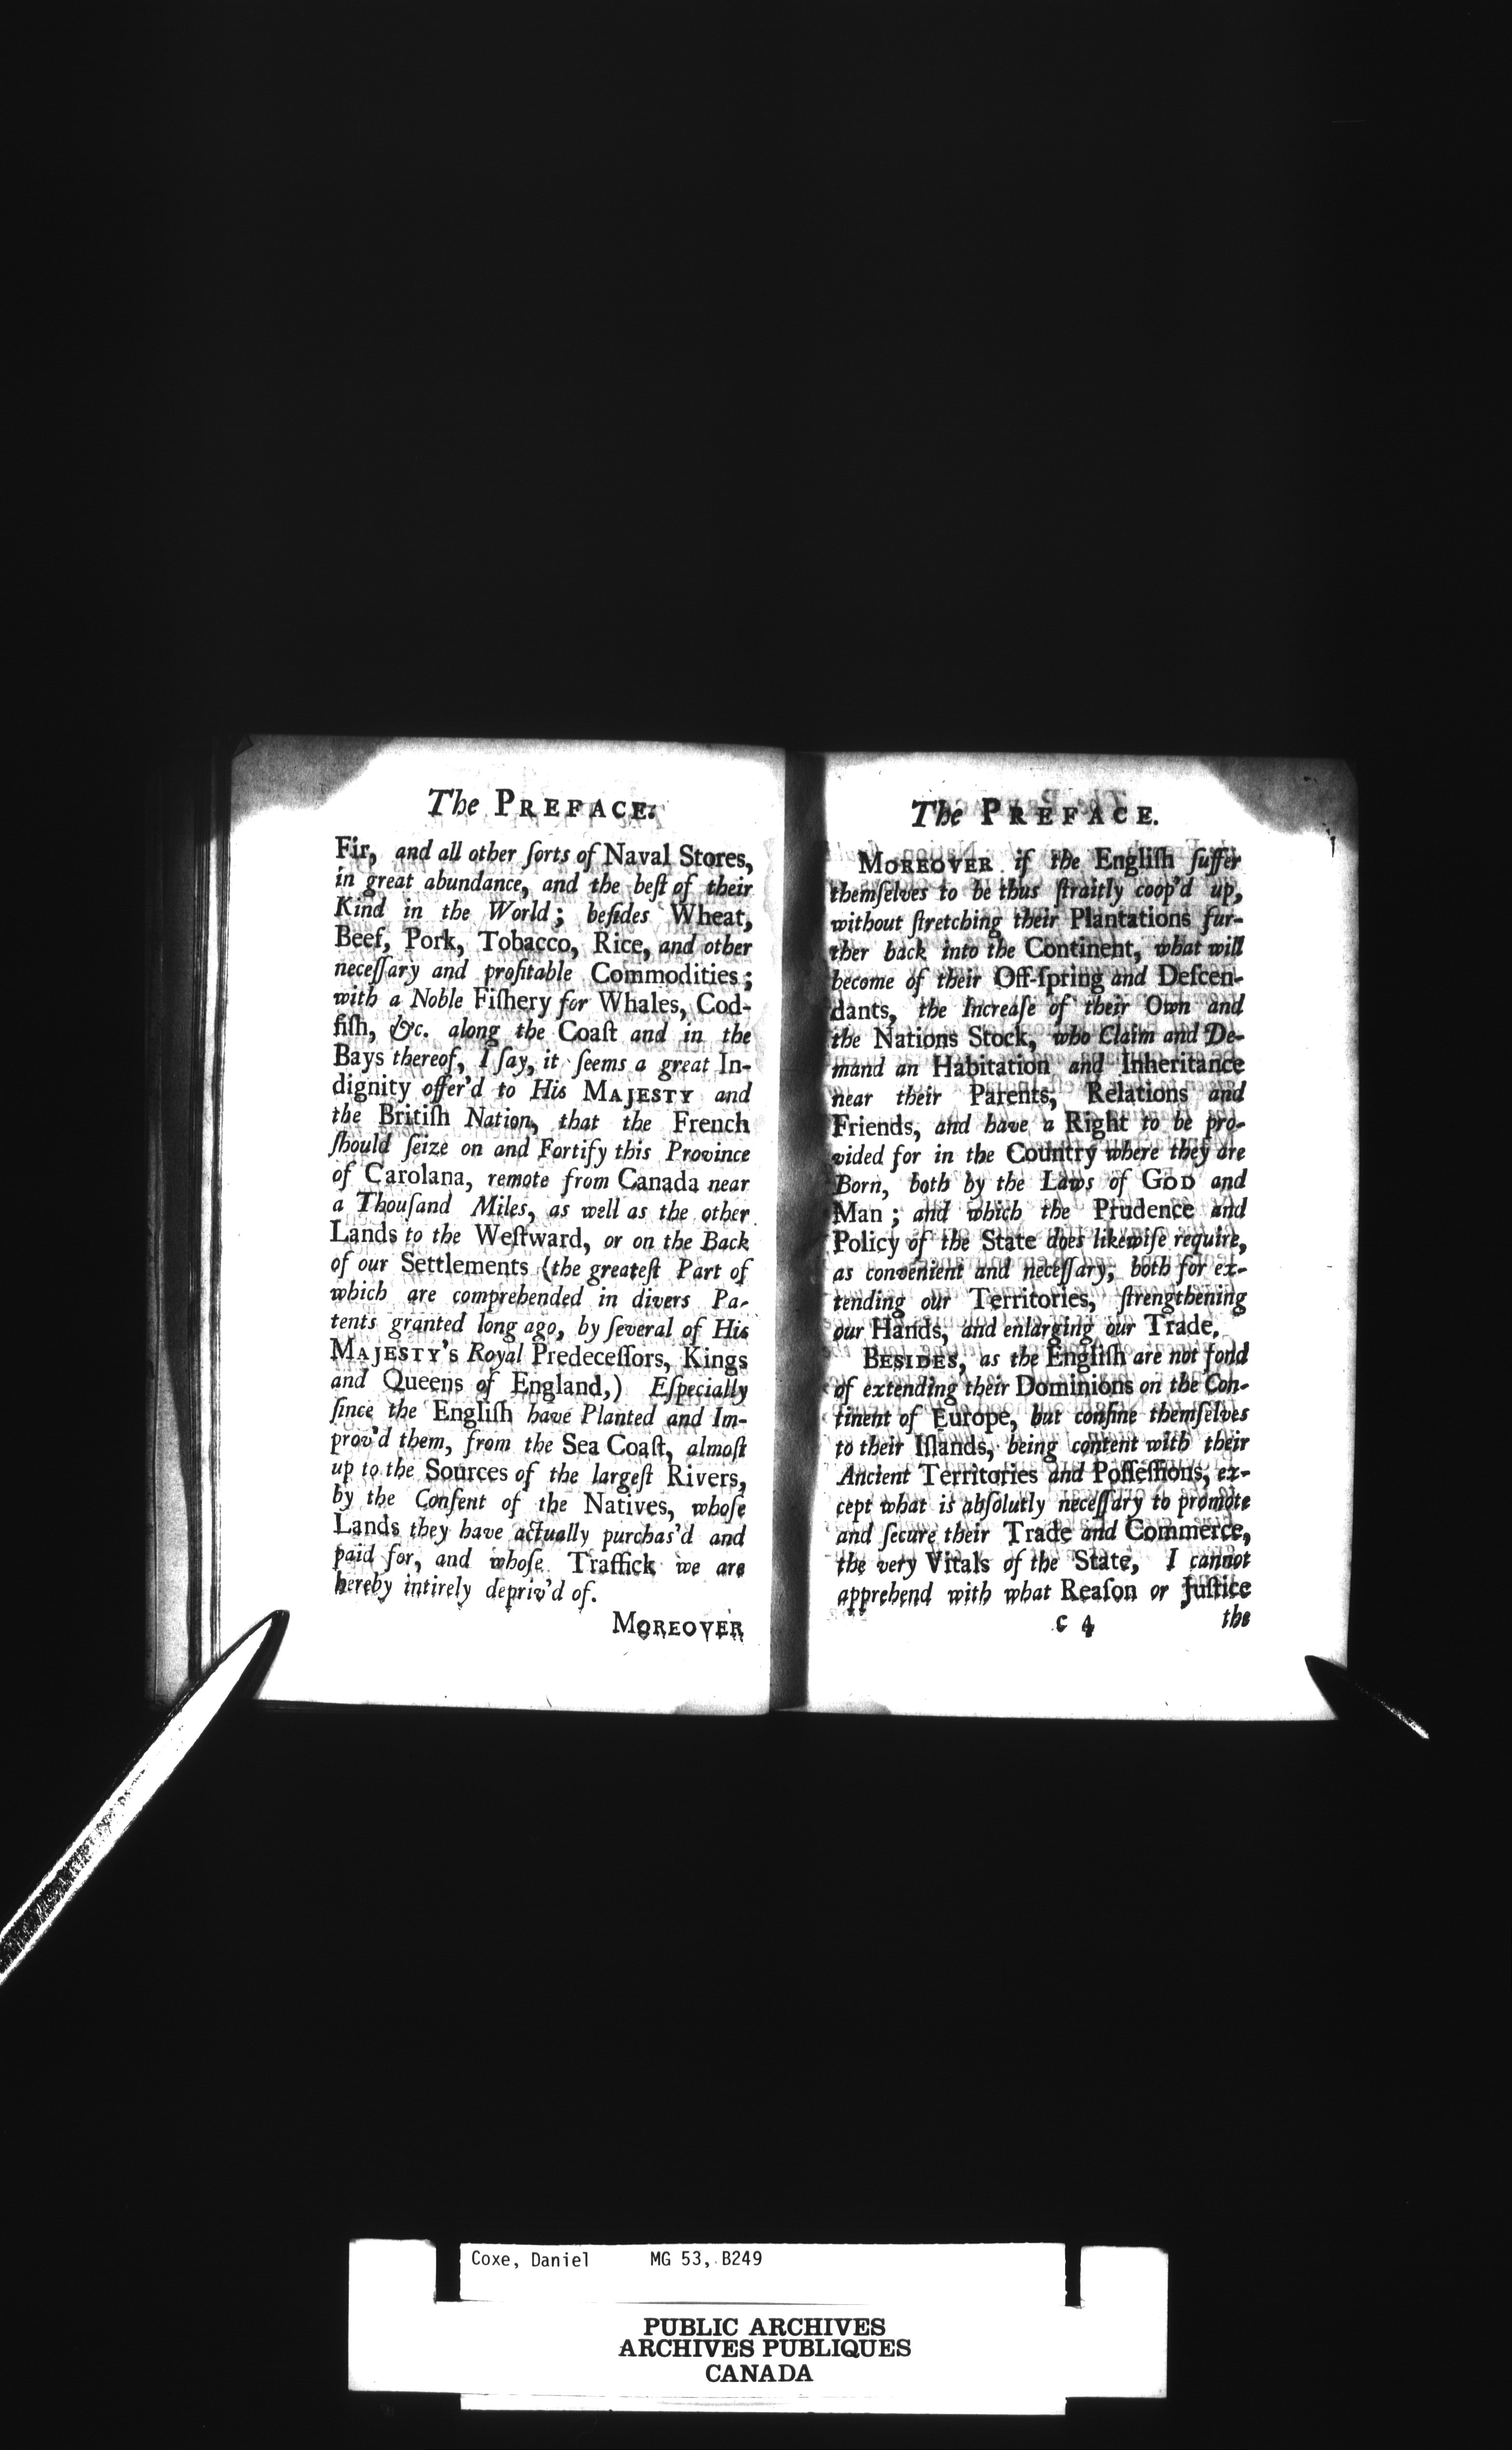 The PREFACE.
Fir, and all other ſorts of Naval Stores,
in great abundance, and the beſt of their
Kind in the World; beſides Wheat,
Beef, Pork, Tobacco, Rice, and other
neceſſary and profitable Commodities;
with a Noble Fiſhery for Whales, Cod-
fiſh, &c. along the Coaſt and in the
Bays thereof, I ſay, it ſeems a great In-
dignity offer'd to His MAJESTY and
the Britiſh Nation, that the French
ſhould ſeize on and Fortify this Province
of Carolana, remote from Canada near
a Thouſand Miles, as well as the other
Lands to the Weſtward, or on the Back
of our Settlements (the greateſt Part of
which are comprehended in divers Pa-
tents granted long ago, by ſeveral of His
MAJESTY'S Royal Predeceſſors, Kings
and Queens of England,) Eſpecially
ſince the Engliſh have Planted and Im-
prov'd them, from the Sea Coaſt, almoſt
up to the Sources of the largeſt Rivers,
by the Conſent of the Natives, whoſe
Lands they have actually purchas'd and
paid for, and whoſe Traffick we are
hereby intirely depriv'd of.
MOREOVER
The PREFACE.
MOREOVER if the Engliſh ſuffer
themſelves to be thus ſtraitly coop'd up,
without ſtretching their Plantations fur-
ther back into the Continent, what will
become of their Off-ſpring and Deſcen-
dants, the Increaſe of their Own and
the Nations Stock, who Claim and De-
mand an Habitation and Inheritance
near their Parents, Relations and
Friends, and have a Right to be pro-
vided for in the Country where they are
Born, both by the Laws of GOD and
Man; and which the Prudence and
Policy of the State does likewiſe require,
as convenient and neceſſary, both for ex-
tending our Territories, ſtrengthening
our Hands, and enlarging our Trade.
BESIDES, as the Engliſh are not fond
of extending their Dominions on the Con-
tinent of Europe, but confine themſelves
to their Iſlands, being content with their
Ancient Territories and Poſſeſſions, ex-
cept what is abſolutly neceſſary to promote
and ſecure their Trade and Commerce,
the very Vitals of the State, I cannot
apprehend with what Reaſon or Juſtice
C 4 the
Coxe, Daniel MG 53, B249
PUBLIC ARCHIVES
ARCHIVES PUBLIQUES
CANADA